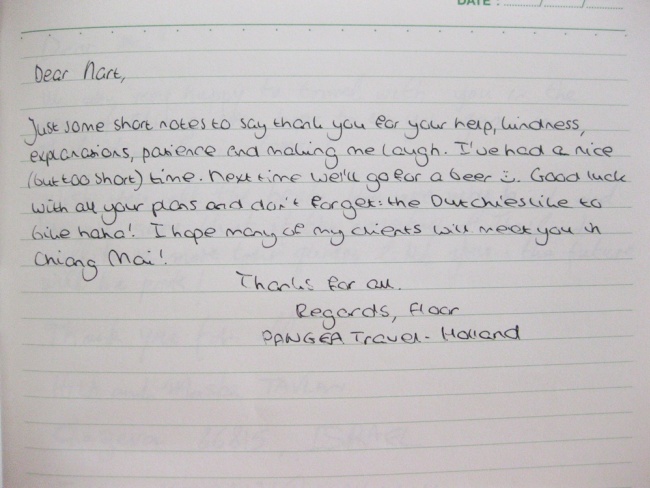 DATE : ......../......../........
Dear Nart,
Just some short notes to say thank you for your help, kindness,
explanations, patience and making me laugh. I've had a nice
(but too short) time. Next time we'll go for a beer :). Good luck
with all your plans and don't forget: the Dutchies like to
bike haha! I hope many of my clients will meet you in
Chiang Mai!
Thanks for all.
Regards, Floor
PANGEA Travel - Holland